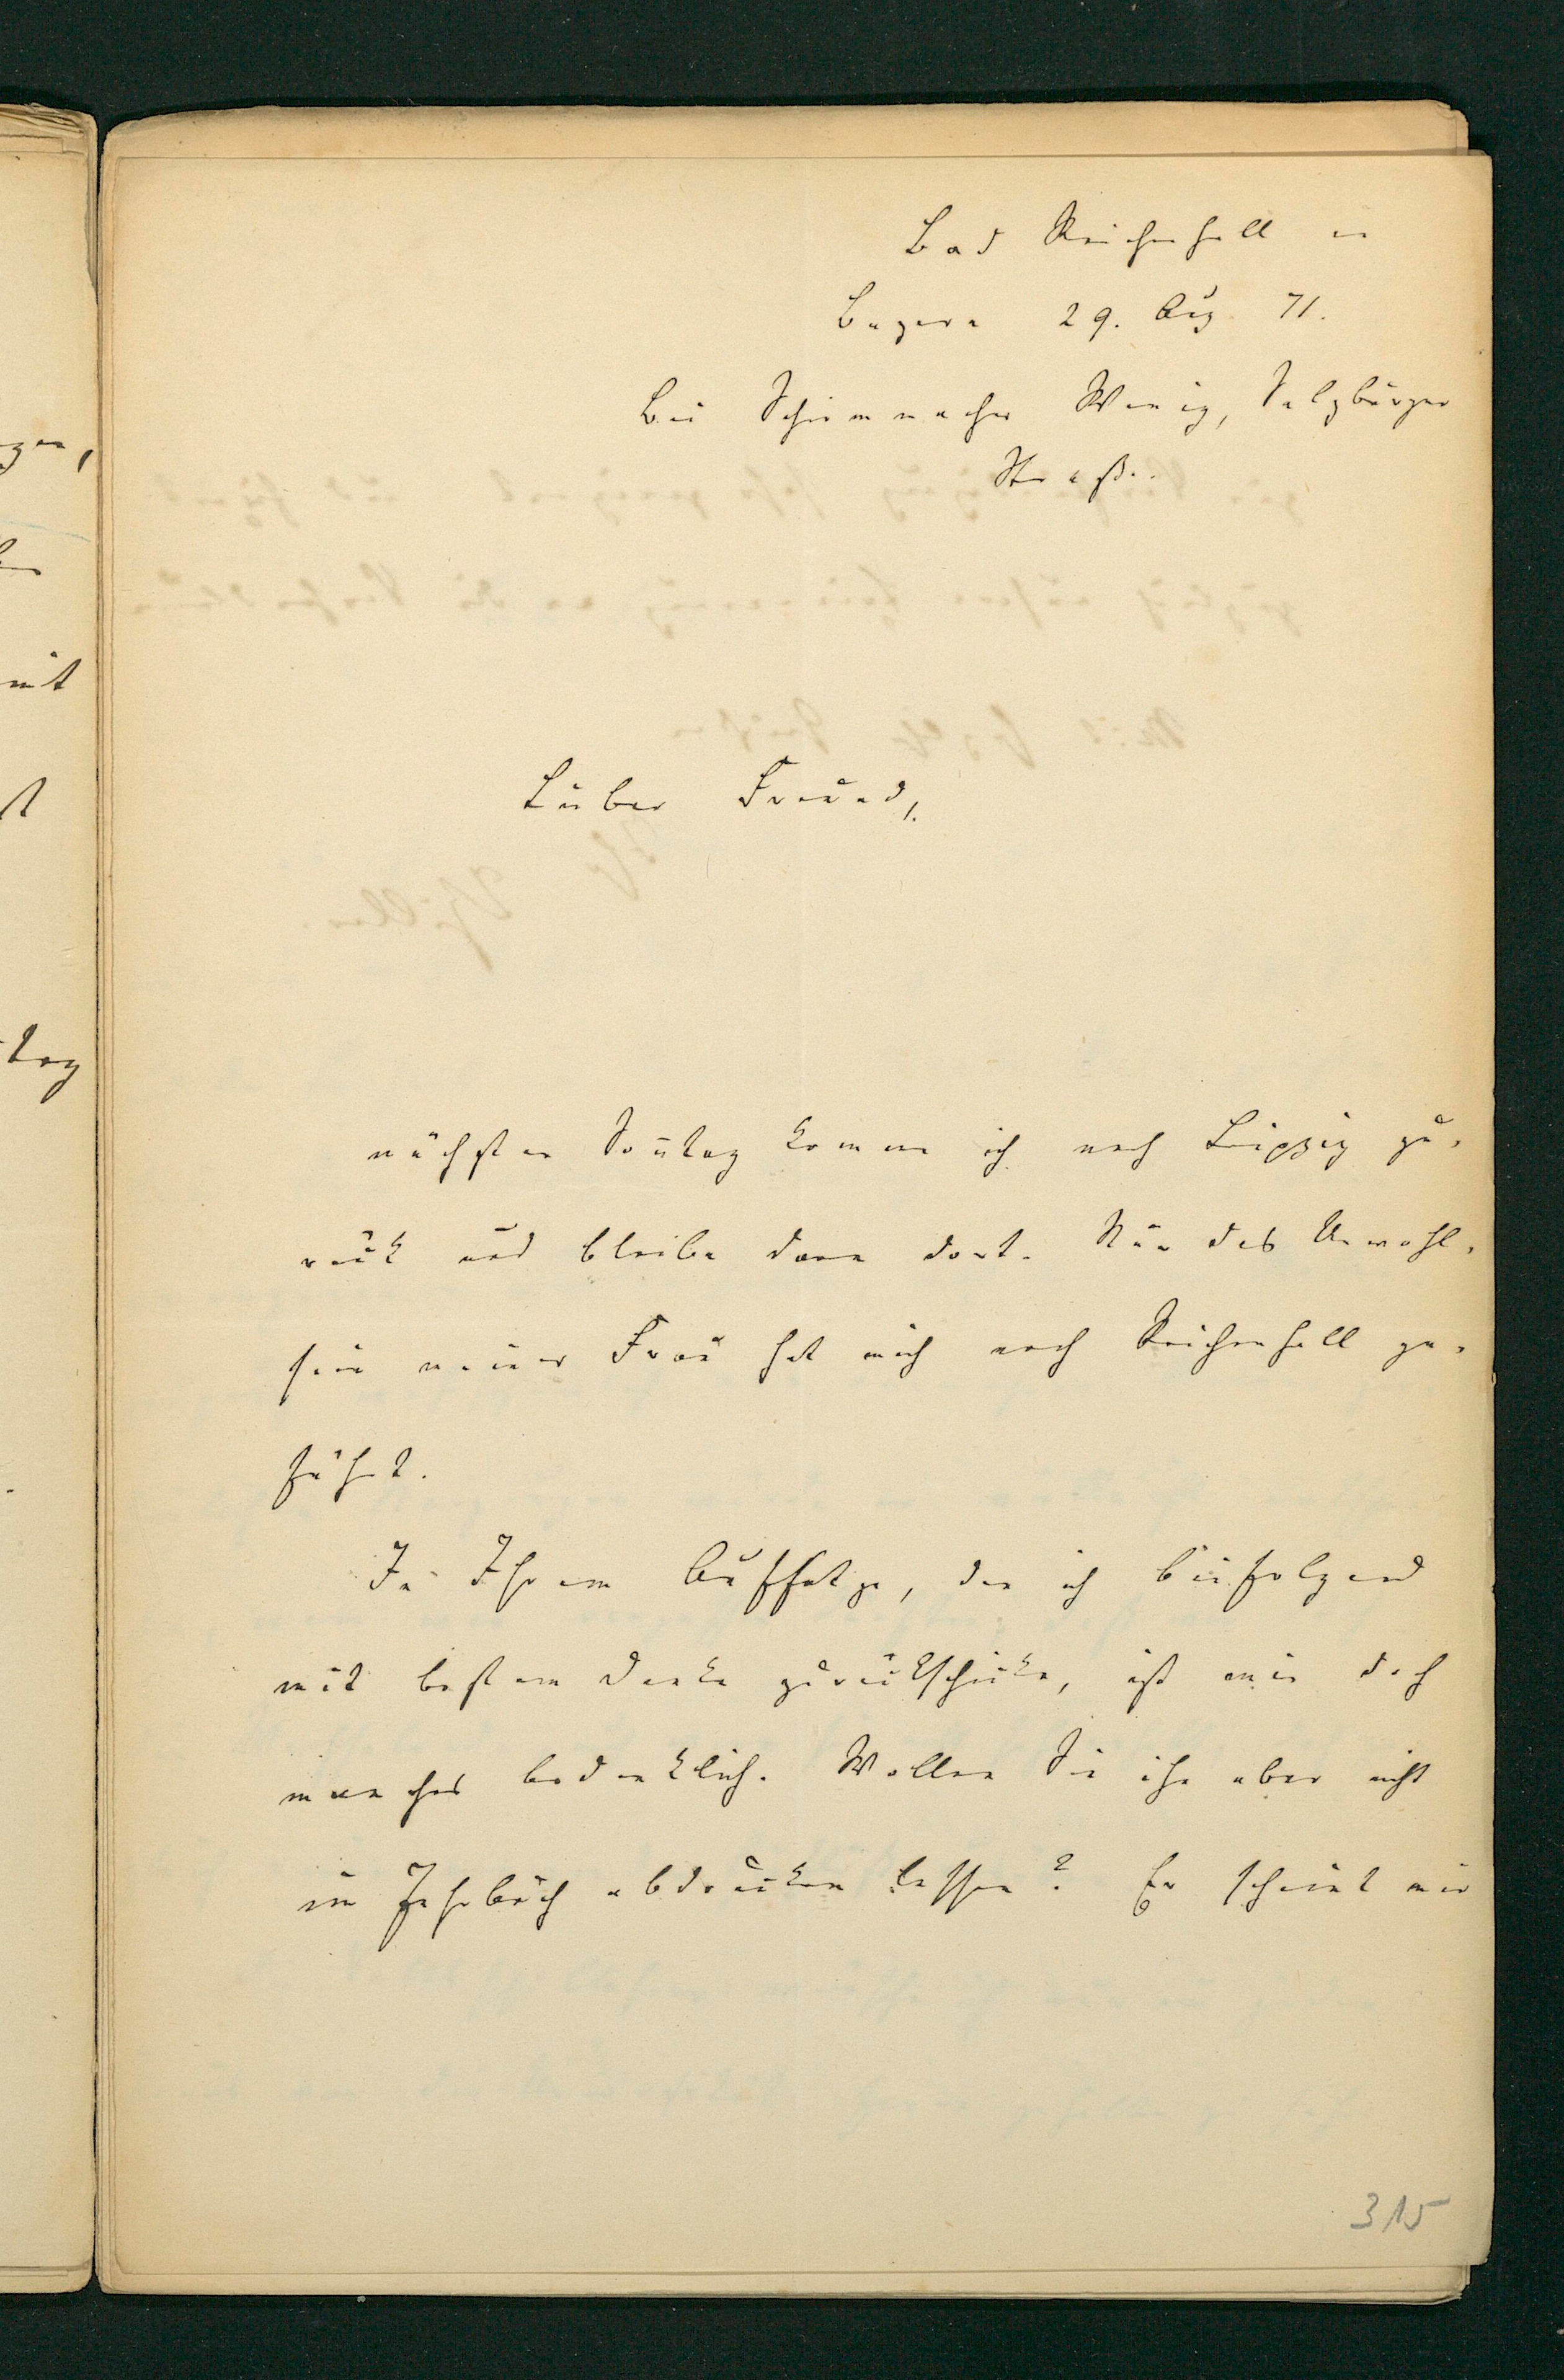 Bad Reichenhall in
Bayern 29. Aug 71.
Bei Schirmmacher Wenig, Salzburger
Straße.
Lieber Freund,
nächsten Soñtag komme ich nach Leipzig zu-
rück und bleibe dann dort. Nur das Unwohl-
sein meiner Frau hat mich nach Reichenhall ge-
führt.
In Ihrem Aufsatze, den ich beifolgend
mit bestem Danke zurückschicke, ist mir doch
manches bedenklich. Wollen Sie ihn aber nicht
im Jahrbuch abdrucken lassen? Er scheint mir
315